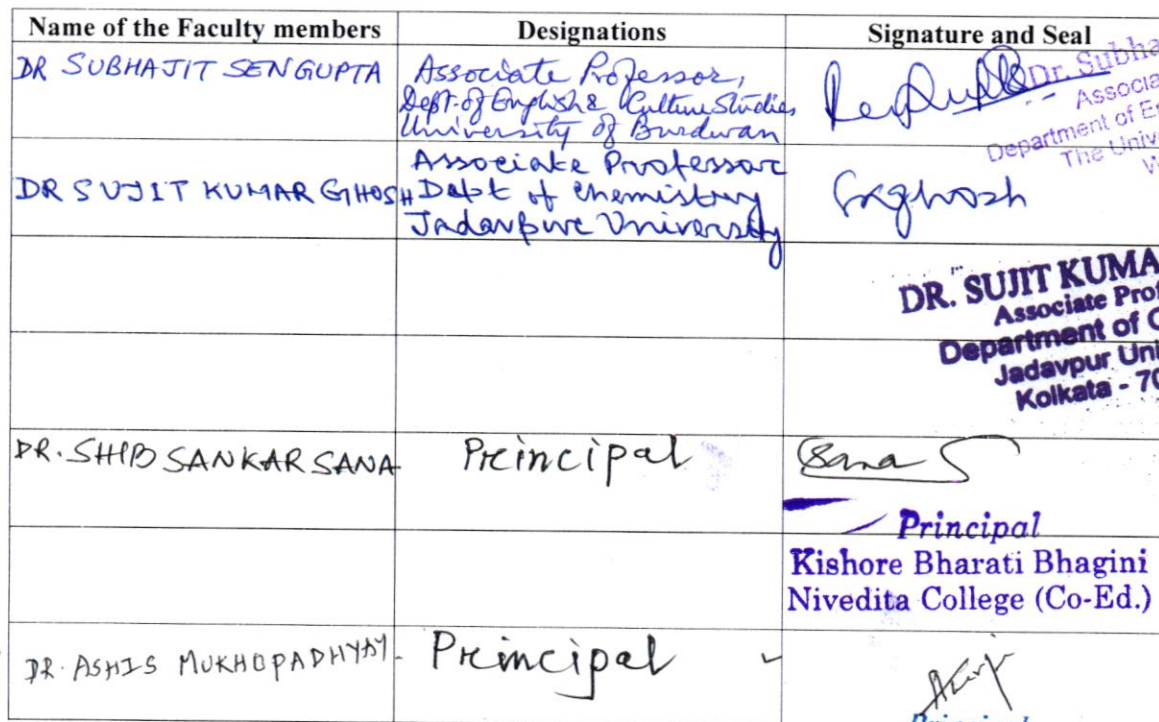 Name of the Faculty members Designations Signature and Seal
DR SUBHAJIT SENGUPTA
Associate Professor,
Dept. of English & Culture Studies
University of Burdwan
Dr. Subha
Associa
Department of E
The Unive
DR SUJIT KUMAR GHOSH
Associate Professor
Dept of Chemistry
Jadavpur University
SKGhosh
DR. SUJIT KUMA
Associate Prof
Department of C
Jadavpur Uni
Kolkata - 70
DR. SHIB SANKAR SANA
Principal
Sana
Principal
Kishore Bharati Bhagini
Nivedita College (Co-Ed.)
DR. ASHIS MUKHOPADHYAY
Principal
Principal